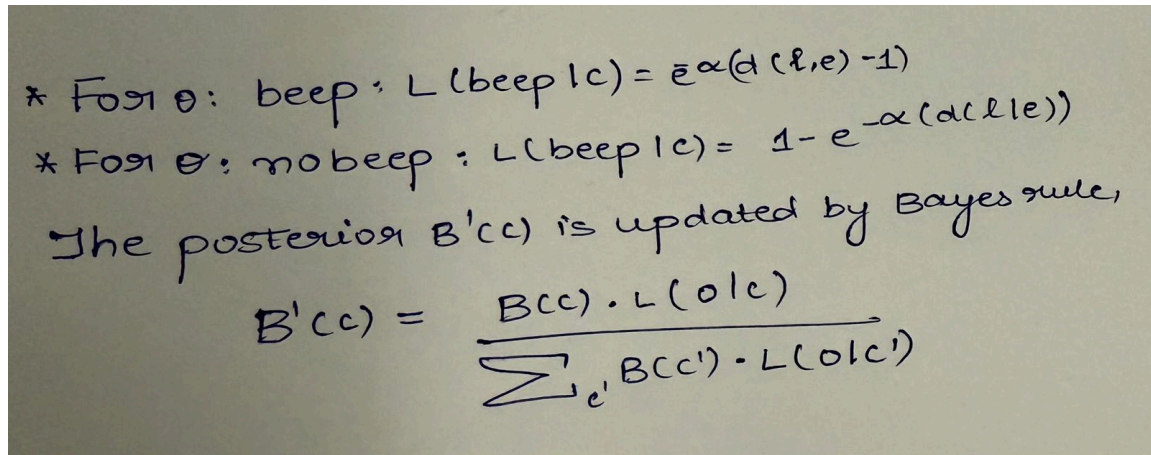 * For o: beep: L(beep|c) = e^-α(d(l,e)-1)
* For o: nobeep: L(beep|c) = 1-e^-α(d(l|e))
The posterior B'(c) is updated by Bayes rule,
B'(c) = B(c).L(o|c)
∑c' B(c').L(o|c')